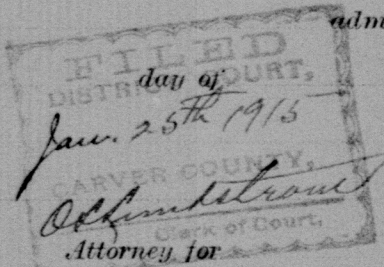 adm
FILED
day of
DISTRICT COURT,
Jan. 25th 1915
CARVER COUNTY,
Clerk of Court,
Attorney for